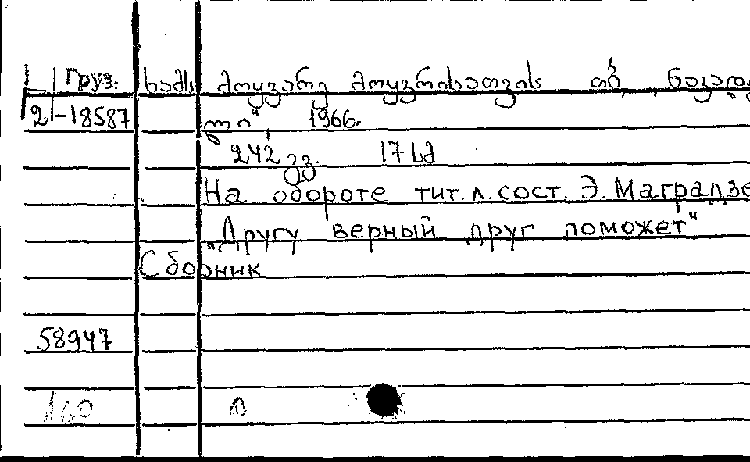 Груз. ხამს მოყვარე მოყვრისათვის თბ., „ნაკადუ
2-18587 ლი“, 1966.
242 გვ. 17 სმ
На обороте тит.л. сост. Э. Маградзе
"Другу верный друг поможет"
Сборник
58947
160